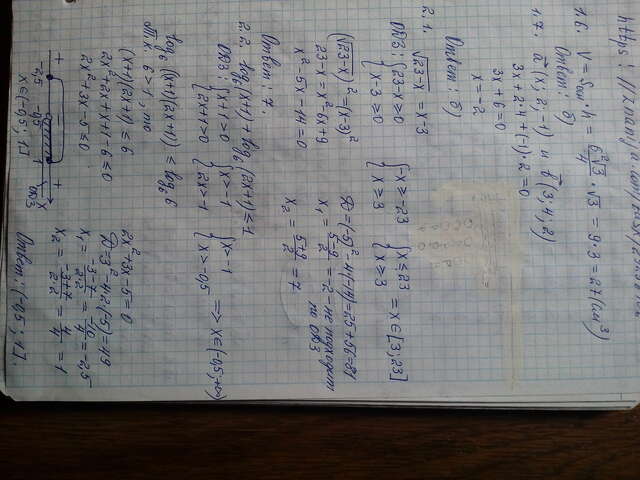 https://znanija.com/
1.6. V = Sосн · H = 6²√3/4 · √3 = 9·3 = 27 (см³)
Ответ: б)
1.7. a⃗ (1; 2; -1) и b⃗ (3; 4; 2)
3x + 2·4 + (-1)·2 = 0
3x + 6 = 0
x = -2
Ответ: б)
2.1. √23-x = x-3
ОДЗ: { 23-x ≥ 0 { -x ≥ -23 { x ≤ 23 = x ∈ [3; 23]
{ x-3 ≥ 0 { x ≥ 3 { x ≥ 3
(√23-x)² = (x-3)²
23-x = x²-6x+9
x²-5x-14=0
D = (-5)²-4·(-14) = 25+56 = 81
x₁ = 5-9/2 = -2 - не подходит
по ОДЗ
x₂ = 5+9/2 = 7
Ответ: 7.
2.2. log₆(x+1) + log₆(2x+1) ≤ 1
ОДЗ: { x+1>0 { x>-1 { x>-1
{ 2x+1>0 { 2x>-1 { x>-0,5 => x ∈ (-0,5; +∞)
log₆ ((x+1)(2x+1)) ≤ log₆ 6
т.к. 6 > 1, то
(x+1)(2x+1) ≤ 6
2x²+2x+x+1-6 ≤ 0
2x²+3x-5 ≤ 0
2x²+3x-5=0
D = 3²-4·2·(-5) = 49
x₁ = -3-7/2·2 = -10/4 = -2,5
x₂ = -3+7/2·2 = 4/4 = 1
+ - +
-2,5 -0,5 1 ОДЗ x
x ∈ (-0,5; 1]
Ответ: (-0,5; 1].